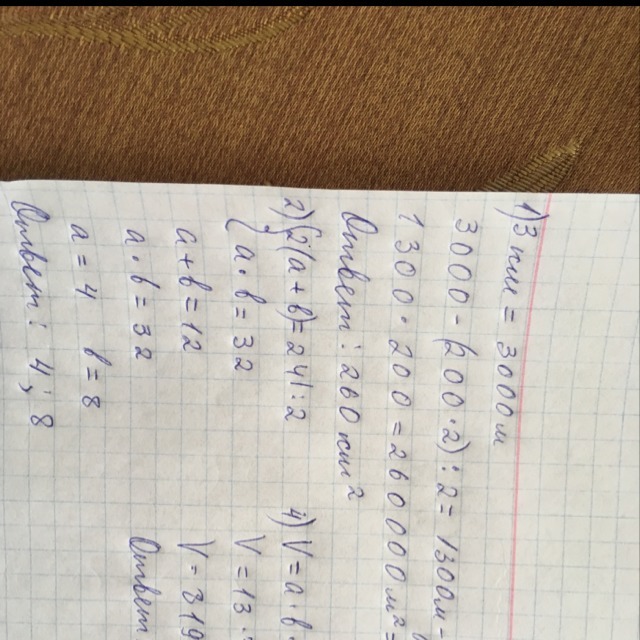 1) 3 км = 3000 м
3000 - (200 · 2) : 2 = 1300м -
1300 · 200 = 260000 м² =
Ответ: 260 км²
2) { 2(a + b) = 24 | : 2
a · b = 32
a + b = 12
a · b = 32
a = 4 b = 8
Ответ: 4; 8
4) V = a · b ·
V = 13 ·
V = 319
Ответ